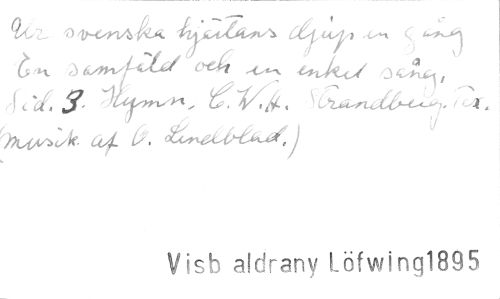 Ur svenska hjärtans djup en gång
En samfäld och en enkel sång,
Sid. 3. Hymn. C.W.A. Strandberg. Tex.
(musik af O. Lindblad.)
Visb aldrany Löfwing1895